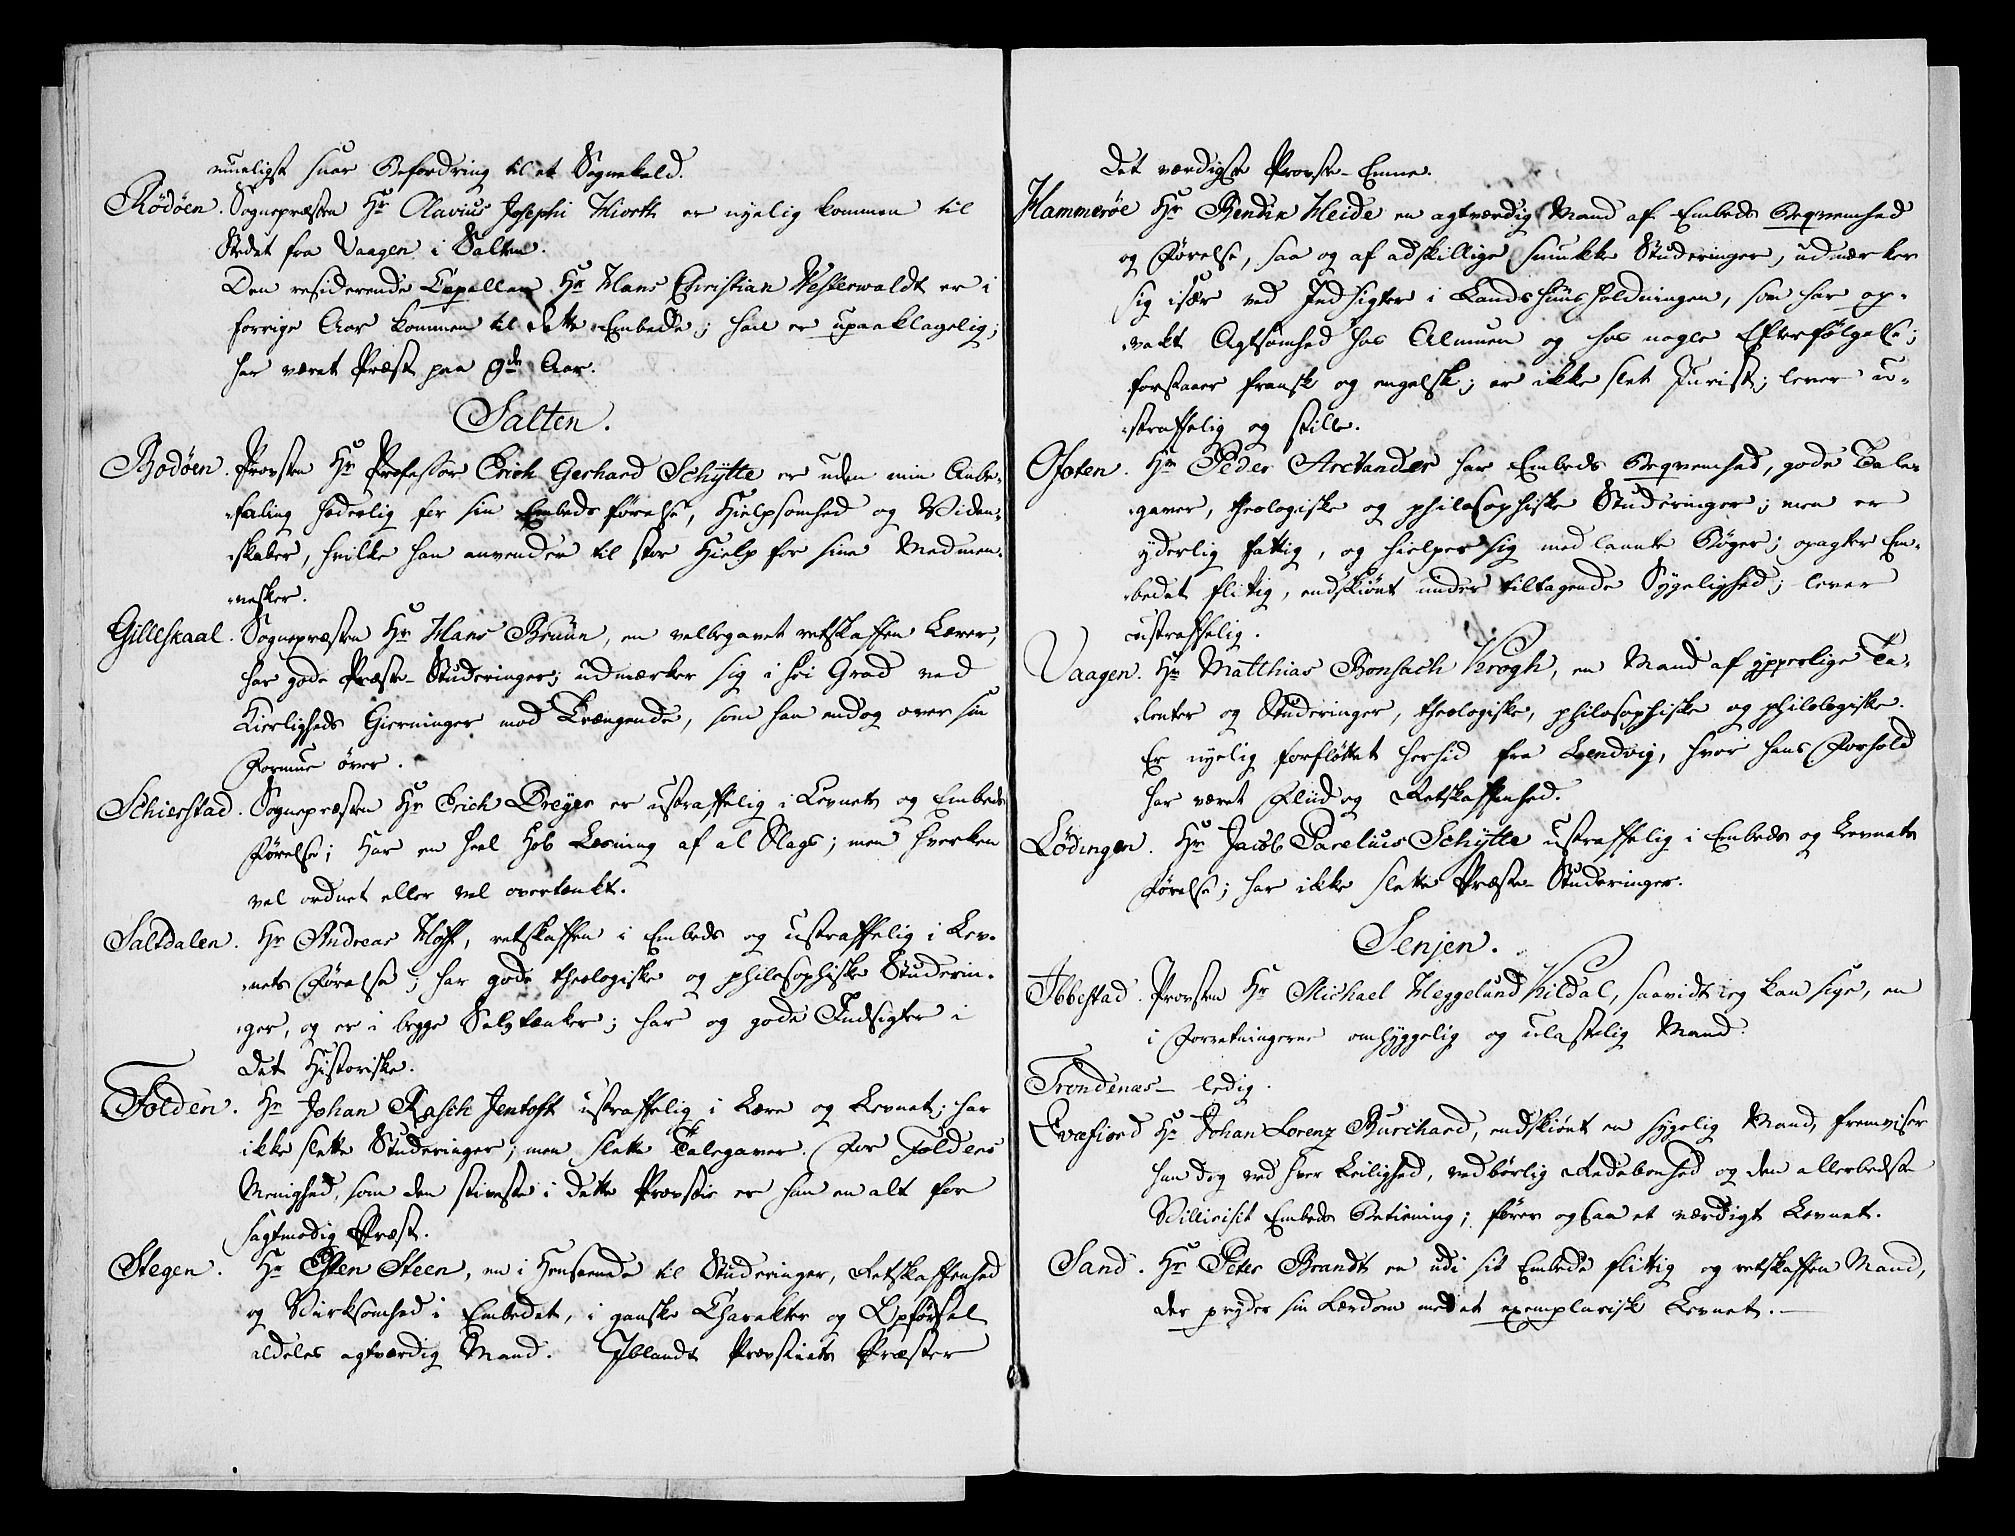 mueligst snar Befordring til et Sognekald.
Rödöen. Sognepræsten Hr Olavius Josephi Hiorth er nyelig kommen til
Stedet fra Vaagen i Salten.
Den residerende Capellan Hr Hans Christian Westerwaldt er i
forrige Aar kommen til dette Embede; han er upaaklagelig;
har været Præst paa 9de Aar.
Salten.
Bodöen. Provsten Hr Professor Erich Gerhard Schÿtte er uden min Anbe-
-faling hæderlig for sin Embedsførelse, Hielpsomhed og Viden-
-skaber, hvilke han anvender til stor Hielp for sine Medmen-
-nesker.
Gilleskaal. Sognepræsten Hr Hans Bruun, en velbegavet retskaffen Lærer,
har gode Præste-Studeringer; udmærker sig i høi Grad ved
Kierligheds Gierninger mod Trængende, som han endog over sin
Formue över.
Schierstad. Sognepræsten Hr Erich Dreyer er ustraffelig i Levnets og Embeds
Førelse; Har en heel Hob Læsning af al Slags; men hverken
vel ordnet eller vel overtænkt.
Saltdalen. Hr Andreas Hoff, retskaffen i Embeds og ustraffelig i Lev-
-nets Førelse; har gode theologiske og philosophiske Studerin-
-ger, og er i begge Selvtænker; har og gode Indsigter i
det Historiske.
Folden. Hr Johan Rasch Jentoft ustraffelig i Lære og Levnet; har
ikke slette Studeringer; men slette Talegaver. For Foldens
Menighed, som den stiveste i dette Provstie er han en alt for
sagtmodig Præst.
Stegen. Hr Esten Steen, en i Henseende til Studeringer, Retskaffenhed
og Virksomhed i Embedet, i ganske Charakter og Opførsel
aldeles agtværdig Mand. Iblandt Provstiets Præster
det værdigste Provste-Emne.
Hammeröe Hr Bendix Heide en agtværdig Mand af Embeds Beqvemhed
og Førelse, saa og af adskillige smukke Studeringer, udmærker
sig især ved Indsigter i Landhuusholdningen, som har op-
-vakt Agtsomhed hos Almuen og hos nogle Efterfølgelse;
forstaaer fransk og engelsk; er ikke slet Jurist; lever u-
-straffelig og stille.
Ofoten. Hr Peder Arctander har Embeds Beqvemhed, gode Tale-
-gaver, theologiske og philosophiske Studeringer; men er
yderlig fattig, og hielper sig med laante Bøger; opagter Em-
-bedet flitig, endskiönt under tiltagende Sygelighed; lever
ustraffelig.
Vaagen. Hr Matthias Bonsach Krogh, en Mand af ypperlige Ta-
-lenter og Studeringer, theologiske, philosophiske og philologiske.
Er nyelig forflöttet herhid fra Lendvig, hvor hans Forhold
har været Fliid og Retskaffenhed.
Lödingen. Hr Jacob Parelius Schÿtte ustraffelig i Embeds og Levnets
Førelse; har ikke slette Præste-Studeringer.
Senjen.
Ibbestad. Provsten Hr Michael Heggelund Kildal, saavidt jeg kan sige, en
i Forretningerne omhyggelig og ulastelig Mand.
Trondenæs - ledig.
Qvæfiord Hr Johan Lorenz Burchard, endskiönt en sygelig Mand, fremviser
han dog ved hver Leilighed, vedbörlig Redebonhed og den allerbedste
Villie i sit Embeds Betiening; förer ogsaa et værdigt Levnet.
Sand. Hr Peter Brandt en udi sit Embede flittig og retskaffen Mand,
der pryder sin Lærdom med et exemplarisk Levnet. -